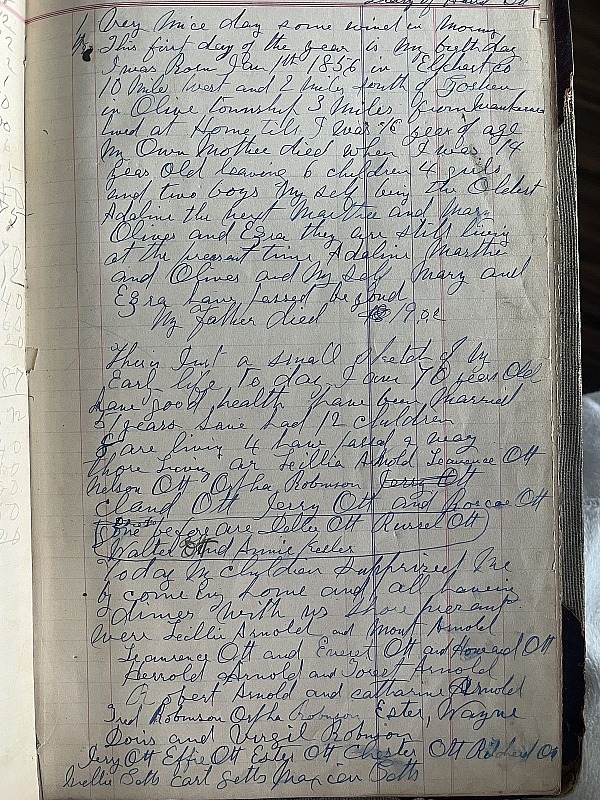 Diary of David Ott
Very nice day some wind in morning
This first day of the year is my birthday
I was Born Jan 1th 1856 in Elkhart Co
10 Miles West and 2 Miles South of Goshen
in Olive township 3 Miles from Waukarusa
lived at Home till I was 26 year of age
My Own Mother died when I was 14
years Old leaving 6 children 4 girls
and two boys My self being the Oldest
Adaline the next Marthie and Mary
Olives and Ezra they are still living
at the present time Adaline Marthie
and Olives and My Self Mary and
Ezra have passed beyond
My Father died 1902
This is Just a small sketch of My
Early life to day I am 70 years Old
have good health have been Married
51 years have had 12 children
8 are living 4 have passed a way
those Living ar Lillia Arnold Lawrence Ott
Nelson Ott Orpha Robinson Jerry Ott
Cland Ott Jerry Ott and Roscoe Ott
One before are Ott Russel Ott
Walter Ott and Annie Keeler
Today My Children supprized Me
by coming home and all having
dinner with us those present
were Lillie Arnold and Mont Arnold
Lawrence Ott and Everet Ott and Howard Ott
Herrold Arnold and Forest Arnold
Robert Arnold and catharine Arnold
Fred Robinson Orpha Robinson Ester, Wayne
Doris and Virgil Robinson
Jerry Ott Effie Ott Ester Ott Chester Ott Richard Ott